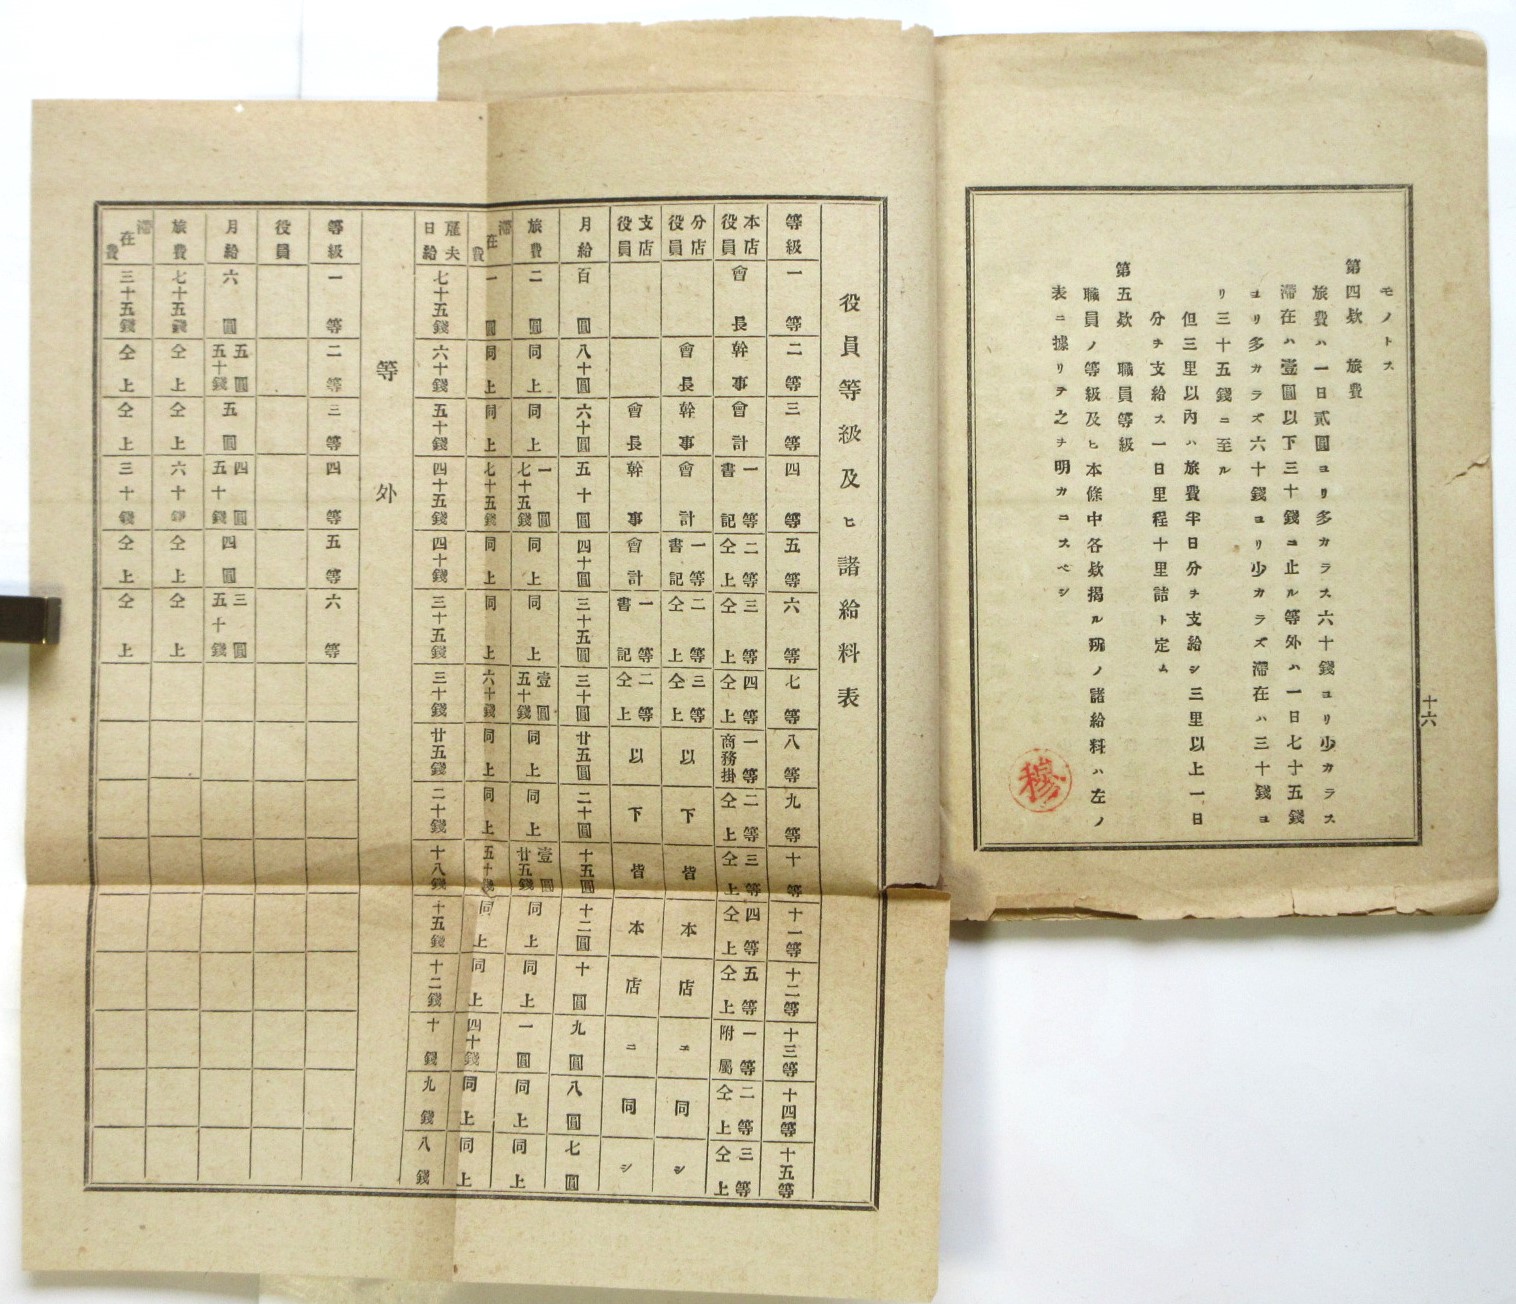 モノトス
第四欵 旅費
旅費ハ一日貳圓ヨリ多カラス六十錢ヨリ少カラス
滯在ハ壹圓以下三十錢ニ止ル等外ハ一日七十五錢
ヨリ多カラズ六十錢ヨリ少カラズ滯在ハ三十錢ヨ
リ三十五錢ニ至ル
但三里以內ハ旅費半日分ヲ支給シ三里以上一日
分ヲ支給ス一日里程十里詰ト定ム
第五欵 職員等級
職員ノ等級及ヒ本條中各欵揭ル所ノ諸給料ハ左ノ
表ニ據リテ之ヲ明カニスベシ
十六
役員等級及ヒ諸給料表
等級 一等 二等 三等 四等 五等 六等 七等 八等 九等 十等 十一等 十二等 十三等 十四等 十五等
本店役員 會長 幹事 會計 一等書記 二等仝上 三等仝上 四等仝上 一等商務掛 二等仝上 三等仝上 四等仝上 五等仝上 一等附屬 二等仝上 三等仝上
分店役員 會長 幹事 會計 一等書記 二等仝上 三等仝上 以下皆本店ニ同シ
支店役員 會長 幹事 會計 一等書記 二等仝上 以下皆本店ニ同シ
月給 百圓 八十圓 六十圓 五十圓 四十圓 三十五圓 三十圓 廿五圓 二十圓 十五圓 十二圓 十圓 九圓 八圓 七圓
旅費 二圓 同上 同上 一圓七十五錢 同上 同上 壹圓五十錢 同上 同上 壹圓廿五錢 同上 同上 一圓 同上 同上
滯在費 一圓 同上 同上 七十五錢 同上 同上 六十錢 同上 同上 五十錢 同上 同上 四十錢 同上 同上
雇夫日給 七十五錢 六十錢 五十錢 四十五錢 四十錢 三十五錢 三十錢 廿五錢 二十錢 十八錢 十五錢 十二錢 十錢 九錢 八錢
等外
等級 一等 二等 三等 四等 五等 六等
役員
月給 六圓 五圓五十錢 五圓 四圓五十錢 四圓 三圓五十錢
旅費 七十五錢 仝上 仝上 六十錢 仝上 仝上
滯在費 三十五錢 仝上 仝上 三十錢 仝上 仝上
穆